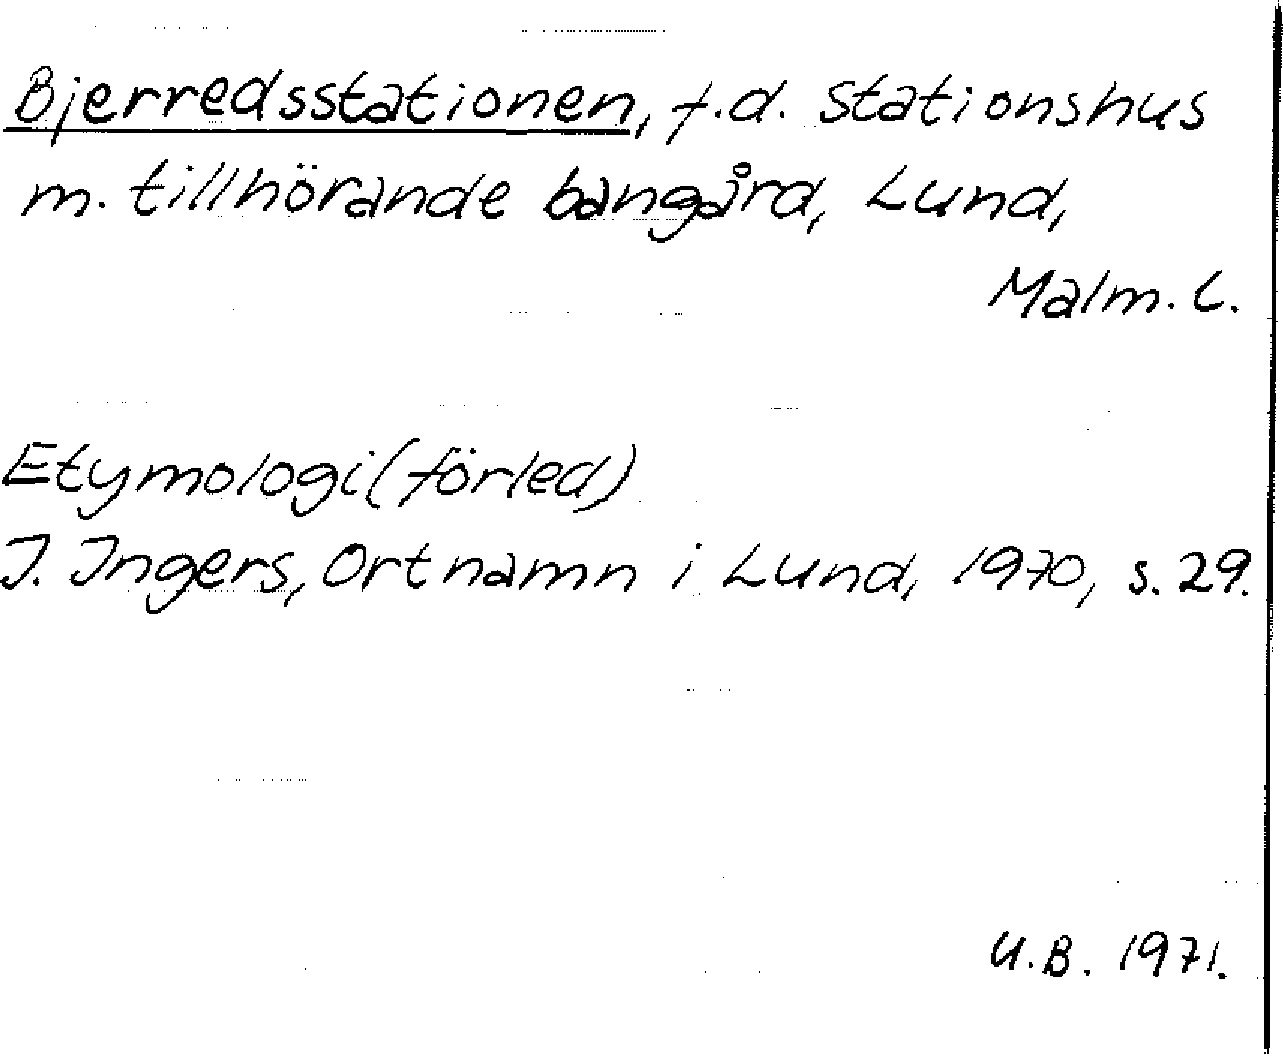 Bjerredsstationen, f.d. stationshus
m. tillhörande bangård, Lund,
Malm. l.
Etymologi (förled)
I. Ingers, Ortnamn i Lund, 1970, s. 29.
U.B. 1971.